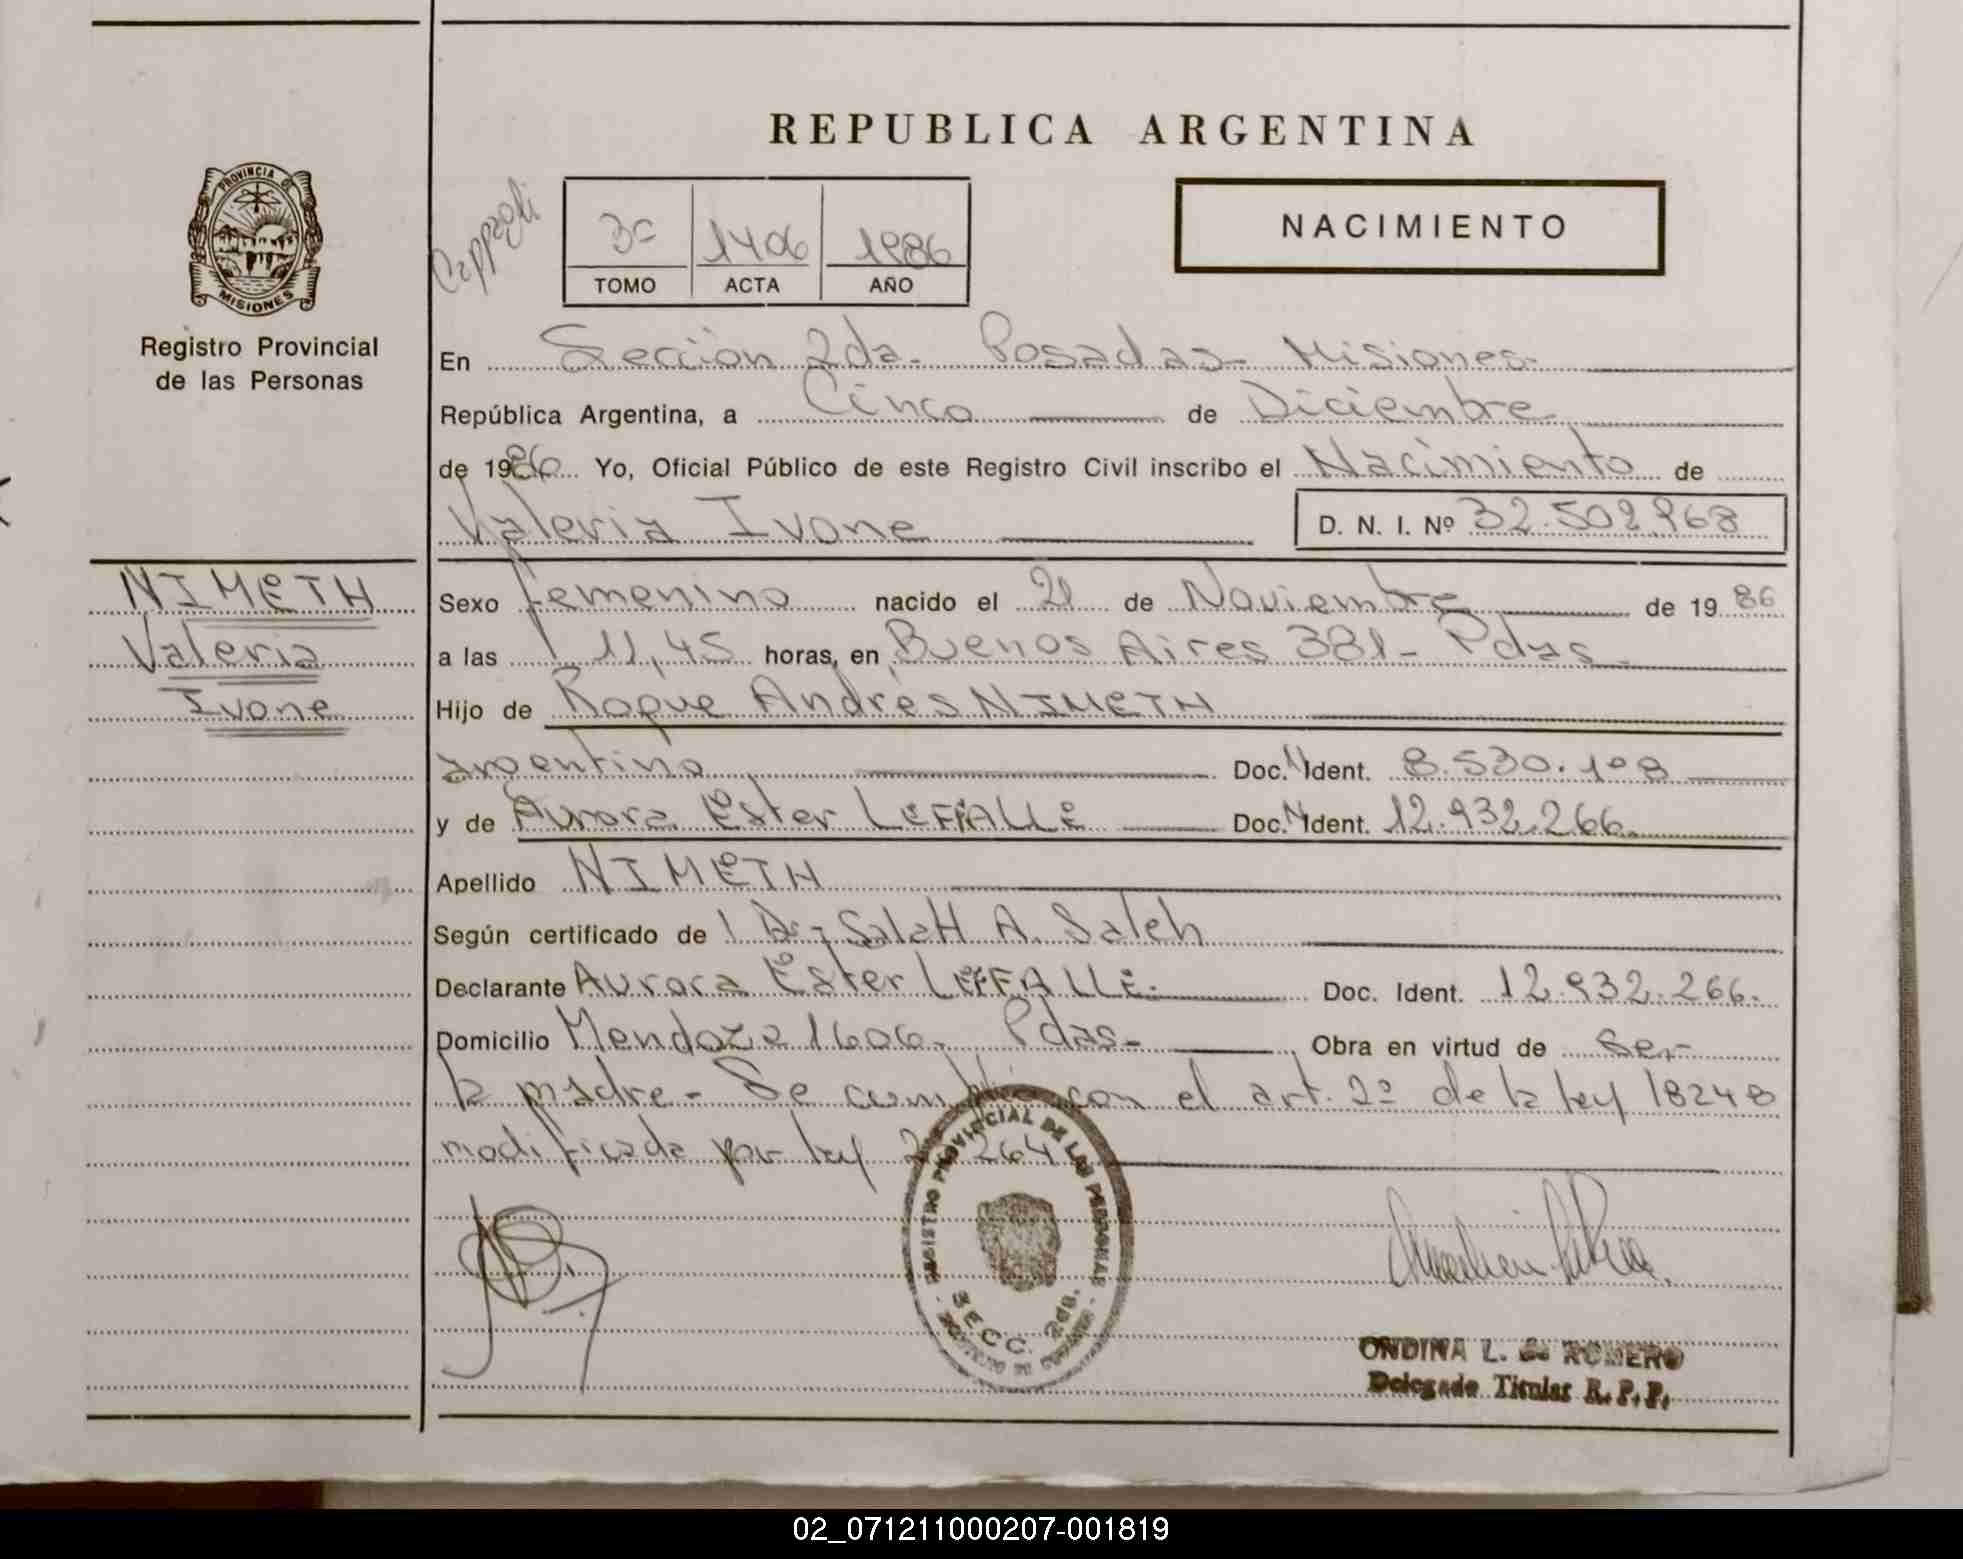 REPUBLICA ARGENTINA
PROVINCIA DE
MISIONES
Registro Provincial
de las Personas
3º 1406 1986
TOMO ACTA AÑO
NACIMIENTO
En Sección 2da. Posadas Misiones.
República Argentina, a Cinco de Diciembre
de 1986 Yo, Oficial Público de este Registro Civil inscribo el Nacimiento de
Valeria Ivone D. N. I. Nº 32.502.968
NIMETH
Valeria
Ivone
Sexo femenino nacido el 21 de Noviembre de 19 86
a las 11,45 horas, en Buenos Aires 381 - Pdas.
Hijo de Roque Andrés NIMETH
argentino Doc. Ident. 8.530.198
y de Aurora Ester LEFALLE Doc. Ident. 12.932.266.
Apellido NIMETH
Según certificado de Dr. Salah A. Saleh
Declarante Aurora Ester LEFALLE. Doc. Ident. 12.932.266.
Domicilio Mendoza 1606. Pdas. Obra en virtud de Ser
la madre - Se cumplió con el art. 2º de la ley 18248
modificada por ley 264
REGISTRO PROVINCIAL DE LAS PERSONAS
SECC. 2da.
ONDINA L. de ROMERO
Delegado Titular R. P. P.
02_071211000207-001819